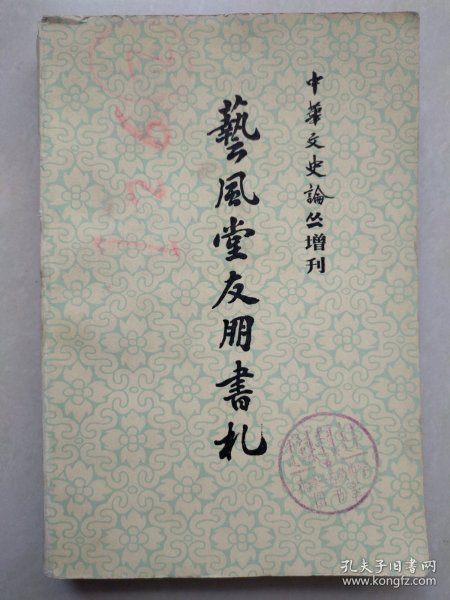 中華文史論丛增刊
藝風堂友朋書札
孔夫子旧书网
www.kongfz.com